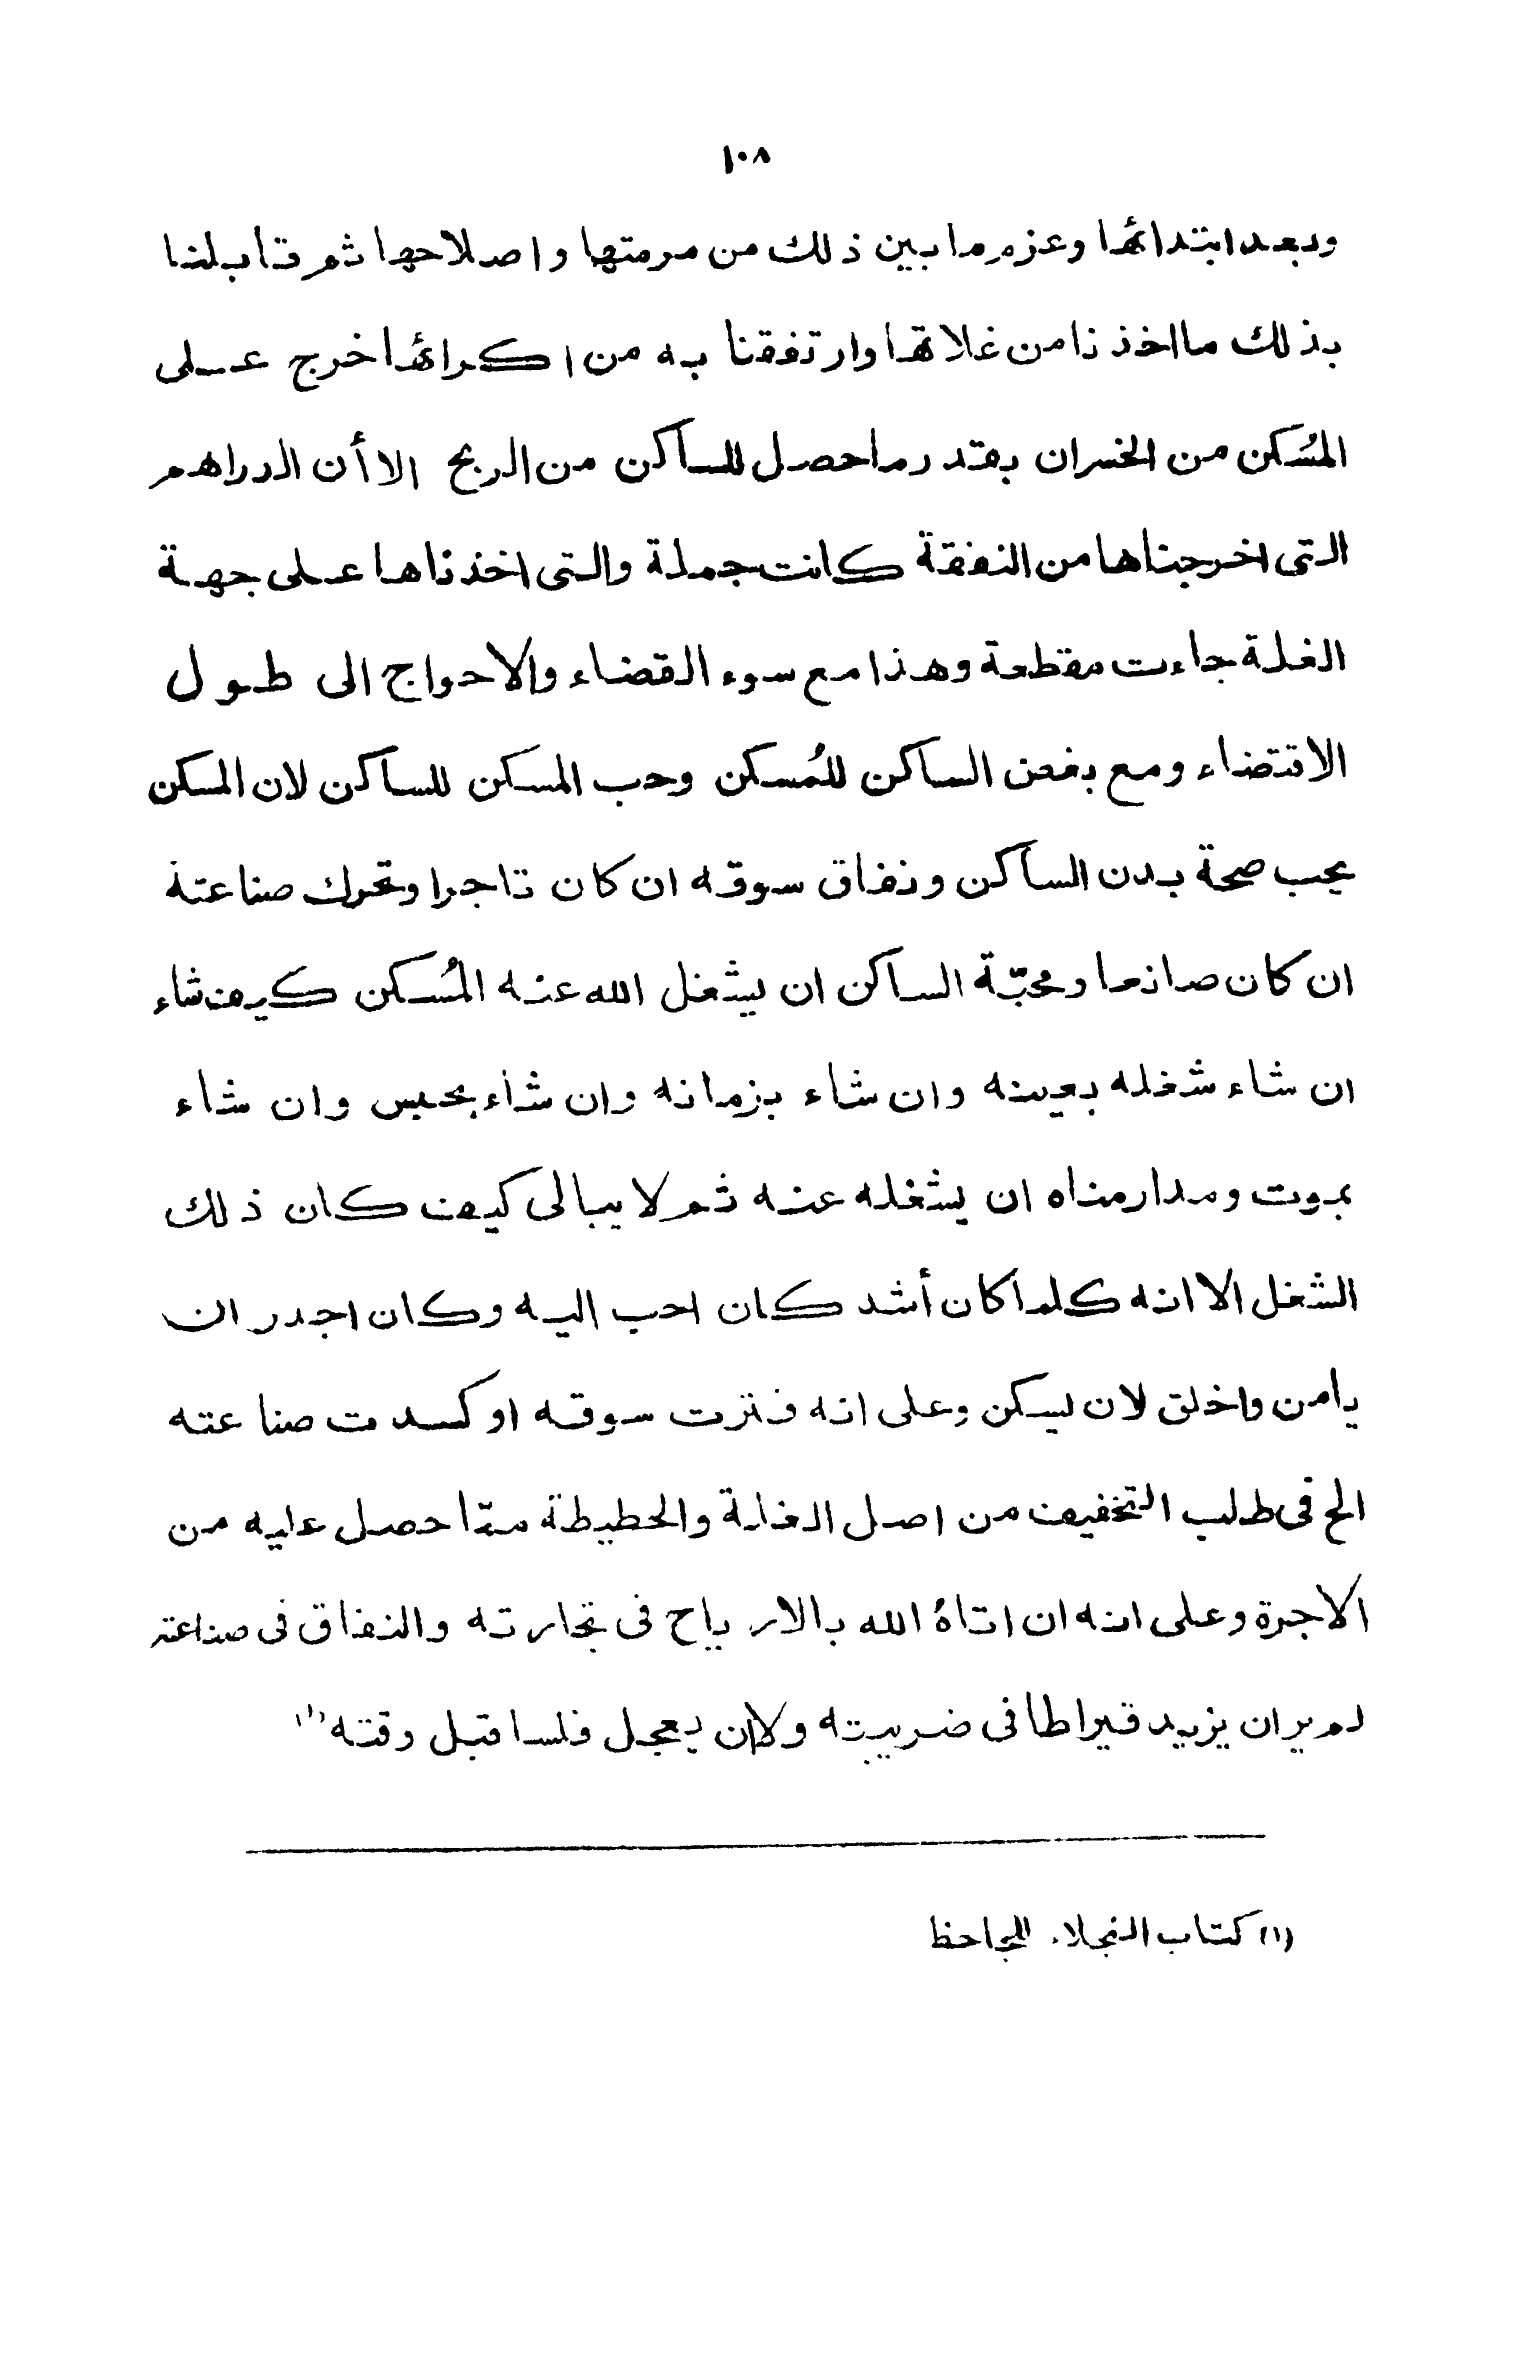 ١٠٨
وبعد ابتدائها وعزم ما بين ذلك من مرمتها واصلاحها ثم قابلنا
بذلك ما اخذنا من غلاتها وارتفقنا به من اكرائها خرج على
المُسَكن من الخسران بقدر ما حصل للساكن من الربح الا أن الدراهم
التى اخرجناها من النفقة كانت جملة والتى اخذناها على جهة
الغلة جاءت مقطعة وهذا مع سوء القضاء والاحواج الى طول
الاقتضاء ومع بغض الساكن للمُسكن وحب المسكن للساكن لان المسكن
يحب صحة بدن الساكن ونفاق سوقه ان كان تاجرا وتحرك صناعتة
ان كان صانعا ومحبّة الساكن ان يشغل الله عنه المُسكن كيف شاء
ان شاء شغله بعينه وان شاء بزمانه وان شاء بحبس وان شاء
بموت ومدار مناه ان يشغله عنه ثم لا يبالى كيف كان ذلك
الشغل الا انه كلما كان أشد كان احب اليه وكان اجدر ان
يامن واخلق لان يسكن وعلى انه فترت سوقه او كسدت صناعته
الح فى طلب التخفيف من اصل الغلة والحطيطة ممّا حصل عليه من
الاجرة وعلى انه ان اتاهُ الله بالارياح فى تجارته والنفاق فى صناعته
لم ير ان يزيد قيراطا فى ضريبته ولان يعجل فلسا قبل وقته (١)
(١) كتاب البخلاء للجاحظ